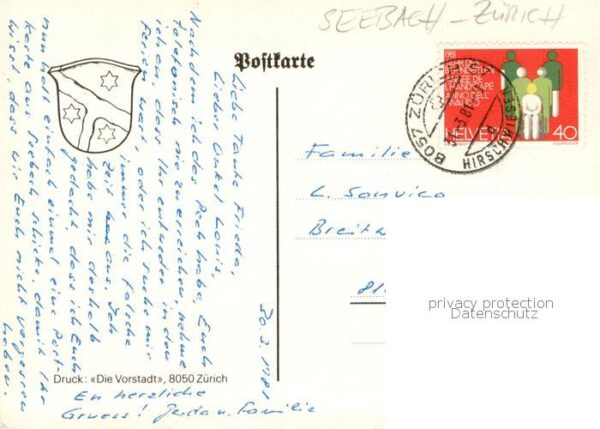 SEEBACH - ZÜRICH
Postkarte
1981
HELVETIA
40
8057 ZÜRICH
HIRSCHWIESEN
30.3.1981
Liebe Tante Frieda,
Lieber Onkel Louis,
Nachdem ich das Pech habe, Euch
telefonisch nie zu erreichen, nehme
ich an dass Ihr entweder in den
Ferien wart, oder ich suche mir
immer die falsche
Zeit aus. Ich
habe mir deshalb
gedacht, dass ich Euch
nun halt einfach einmal eine Post-
karte aus Seebach schicke, damit Ihr
wisst, dass wir Euch nicht vergessen
haben.
En herzliche
Gruess! Gerda u. Familie
Familie
L. Sonvico
Breit
81
privacy protection
Datenschutz
Druck: «Die Vorstadt», 8050 Zürich